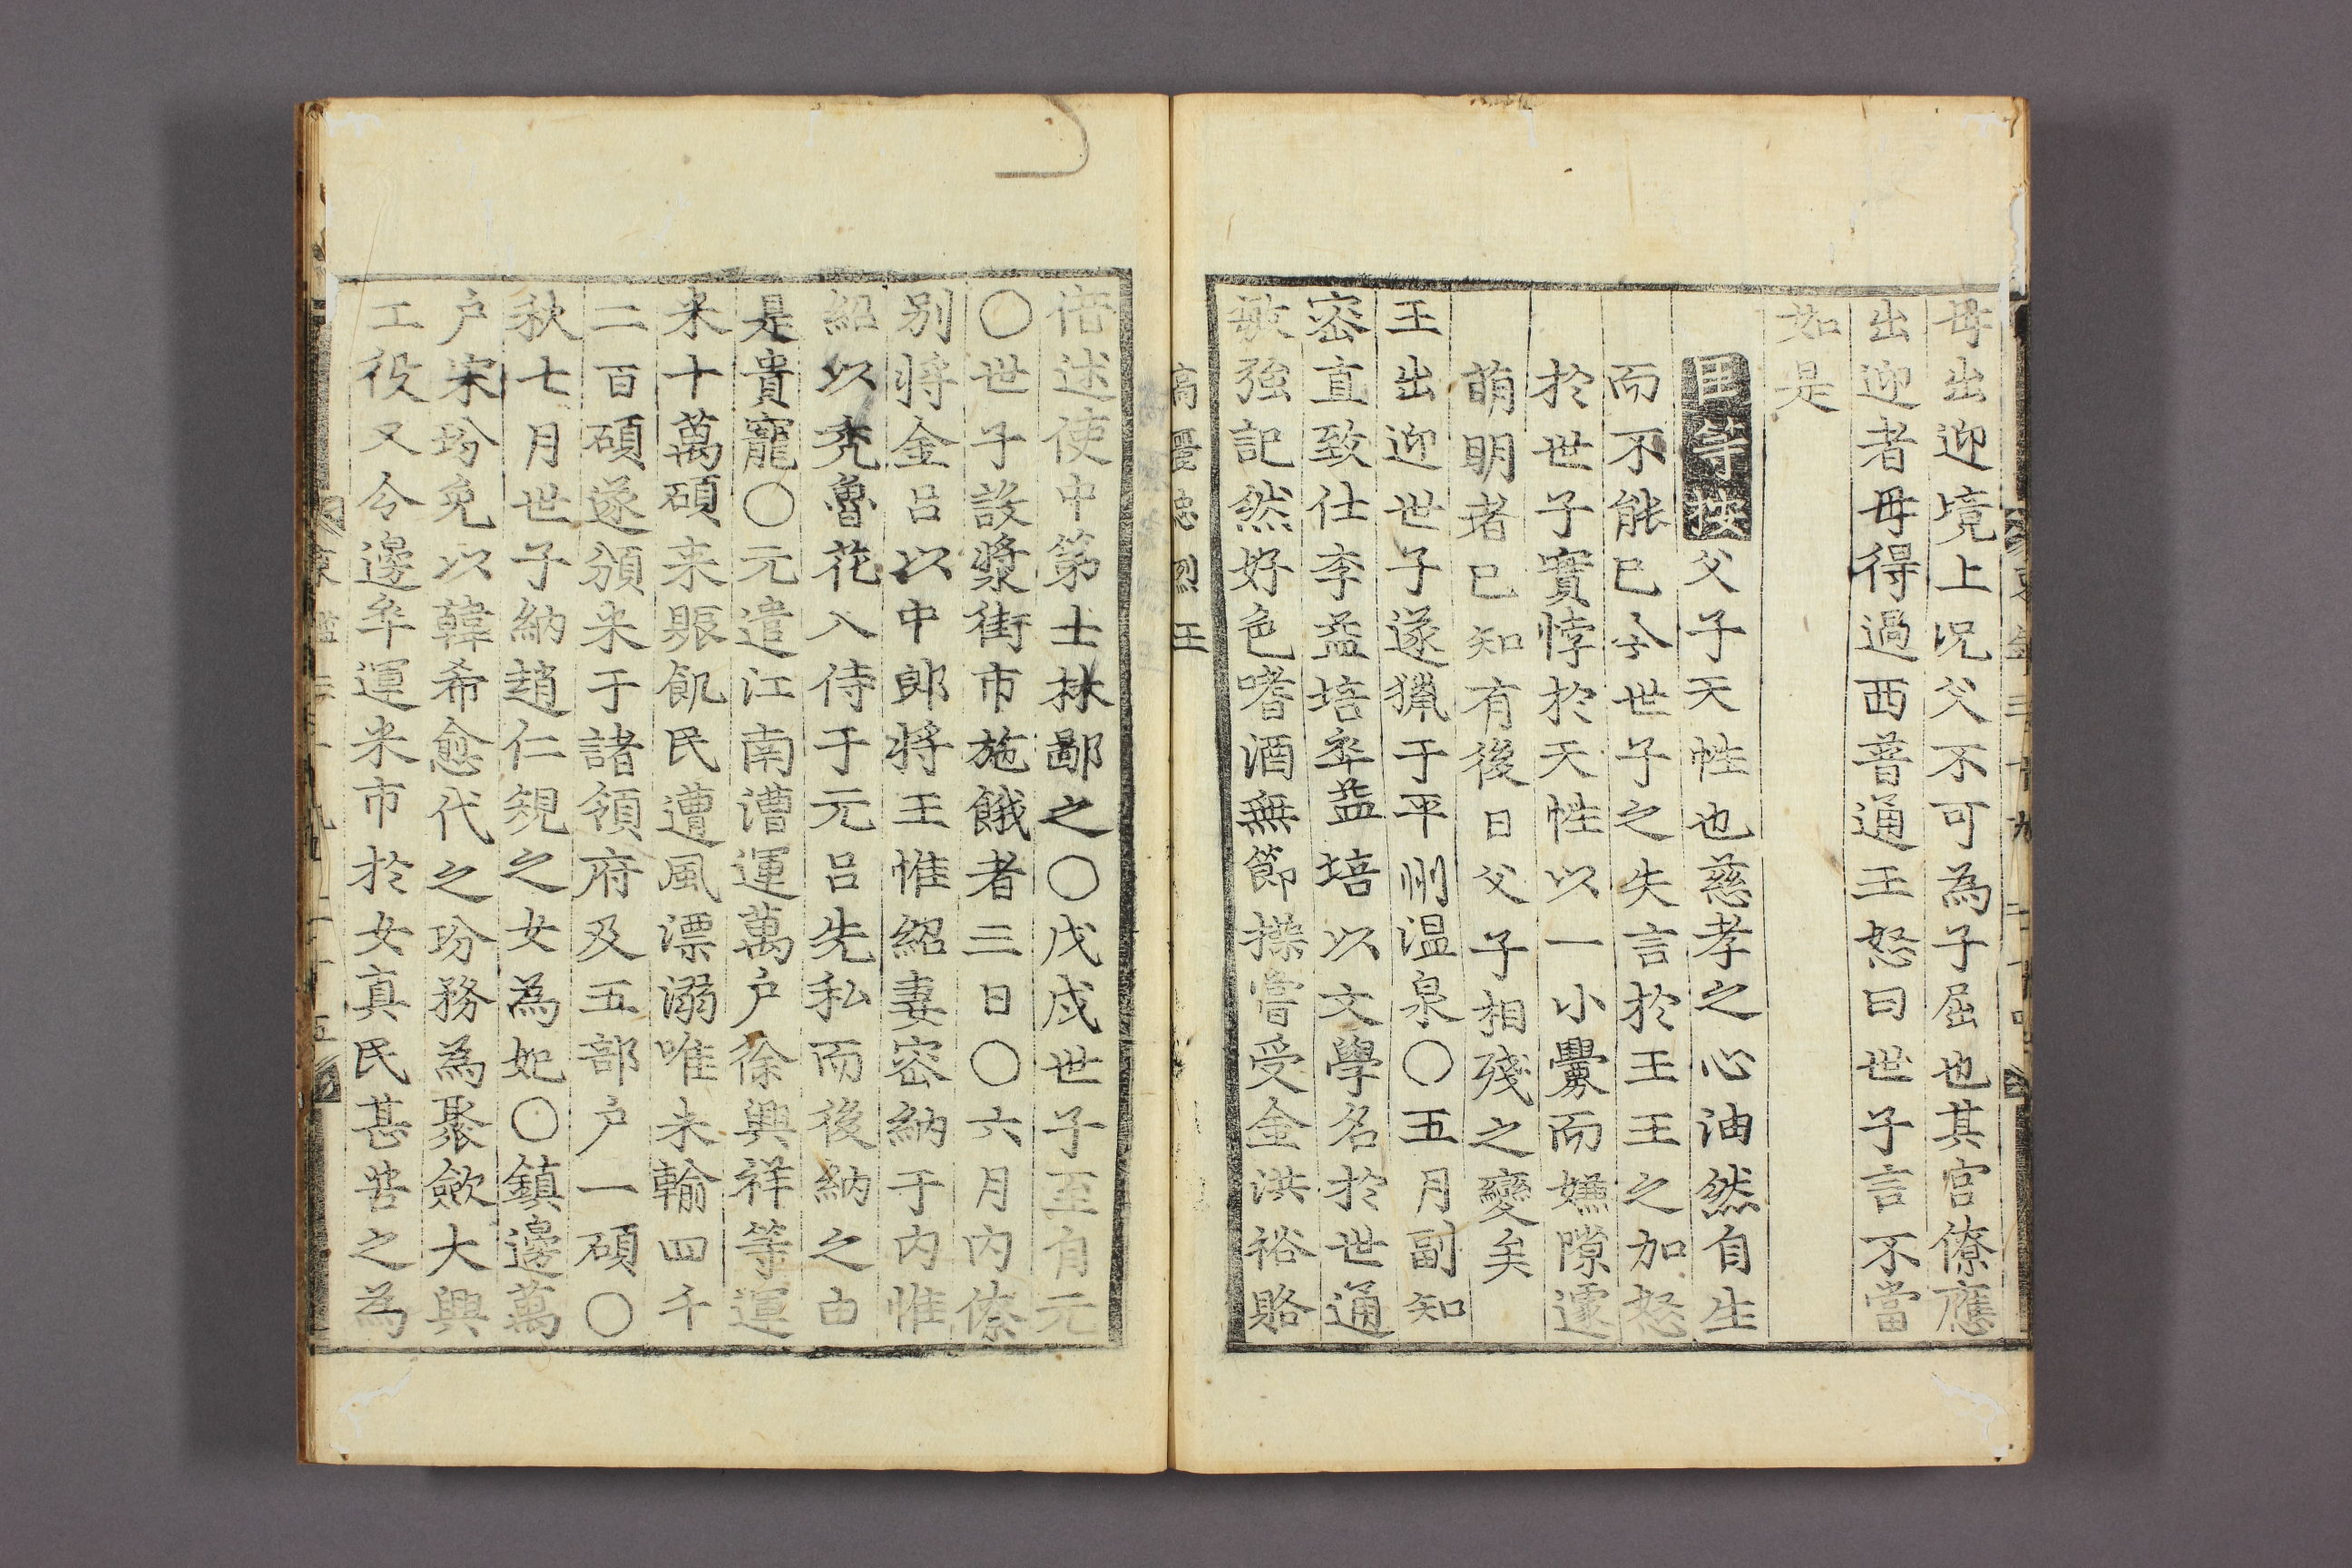 母出迎境上况父不可為子屈也其宮僚應
出迎者毋得過西普通王怒曰世子言不當
如是
臣等按父子天性也慈孝之心油然自生
而不能已今世子之失言於王王之加怒
於世子實悖於天性以一小釁而嫌隙遽
萌明者已知有後日父子相殘之變矣
王出迎世子遂獵于平州温泉○五月副知
密直致仕李益培卒益培以文學名於世通
敏強記然好色嗜酒無節操嘗受金洪裕賂
高麗忠烈王
述使中第士林鄙之○戊戌世子至自元
○世子設漿街市施餓者三日○六月内僚
别將金呂以中郎將王惟紹妻密納于内惟
紹以禿魯花入侍于元呂先私而後納之由
是貴寵○元遣江南漕運萬户徐興祥等運
米十萬碩来賑飢民遭風漂溺唯未輸四千
二百碩遂頒米于諸領府及五部户一碩○
秋七月世子納趙仁規之女為妃○鎮邊萬
户宋玢免以韓希愈代之玢務為聚歛大興
工役又令邊卒運米市於女真民甚苦之為